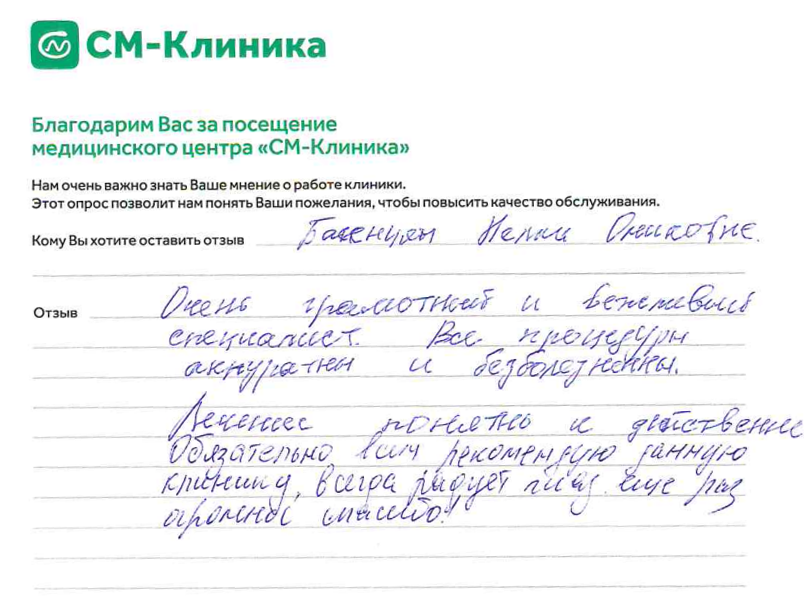 СМ-Клиника
Благодарим Вас за посещение
медицинского центра «СМ-Клиника»
Нам очень важно знать Ваше мнение о работе клиники.
Этот опрос позволит нам понять Ваши пожелания, чтобы повысить качество обслуживания.
Кому Вы хотите оставить отзыв Нелли Ониковне.
Отзыв Очень грамотный и вежливый
специалист. Все процедуры
аккуратны и безболезненны.
Лечение понятно и действенно
Обязательно всем рекомендую данную
клинику, всегда радует еще раз
огромное спасибо!